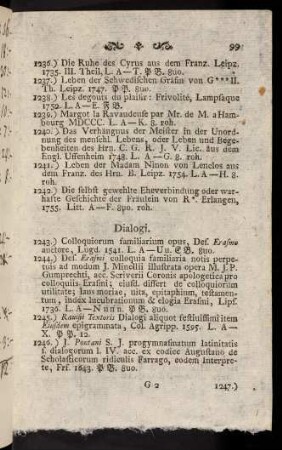 99
1236.) Die Ruhe des Cyrus aus dem Franz. Leipz.
1735. III. Theil, L. A—T. P B. 8uo.
1237.) Leben der Schwedischen Gräfin von G***II.
Th. Leipz. 1747. P P. 8uo.
1238.) Les degouts du plaisir: Frivolité, Lampsaque
1752. L. A—E. F B.
1239.) Margot la Ravaudeuse par Mr. de M. a Ham-
bourg MDCCC. L. A—K. 8. roh.
1240.) Das Verhängnus der Meister in der Unord-
nung des menschl. Lebens, oder Leben und Bege-
benheiten des Hrn. C. G. R. J. V. Lic. aus dem
Engl. Uffenheim 1748. L. A—G. 8. roh.
1241.) Leben der Madam Ninon von Lenclos aus
dem Franz. des Hru. B. Leipz. 1754. L. A—H. 8.
roh.
1242.) Die selbst gewehlte Eheverbindung oder war-
hafte Geschichte der Fräulein von R*. Erlangen,
1755. Litt. A—F. 8uo. roh.
Dialogi.
1243.) Colloquiorum familiarium opus, Des. Erasmo
auctore, Lugd. 1541. L. A—Uu. C B. 8uo.
1244.) Des. Erasmi colloquia familiaria notis perpe-
tuis ad modum J. Minellii illustrata opera M. J. P.
Gumprechti, acc. Scriverii Coronis apologetica pro
colloquiis Erasmi; eiusd. differt de colloquiorum
utilitate; laus moriae, uita, epitaphium, testamen-
tum, index lucubrationum & elogia Erasmi, Lips.
1736. L. A—Nnnn. P B. 8uo.
1245.) Rauisii Textoris Dialogi aliquot festiuissimi item
Eiusdem epigrammata, Col. Agripp. 1595. L. A—
X. P P. 12.
1246.) J. Pontani S. J. progymnasmatum latinitatis
s. dialogorum l. IV. acc. ex codice Augustano de
Scholasticorum ridiculis Farrago, eodem Interpre-
te, Frf. 1643. P B. 8uo.
G 2
1247.)